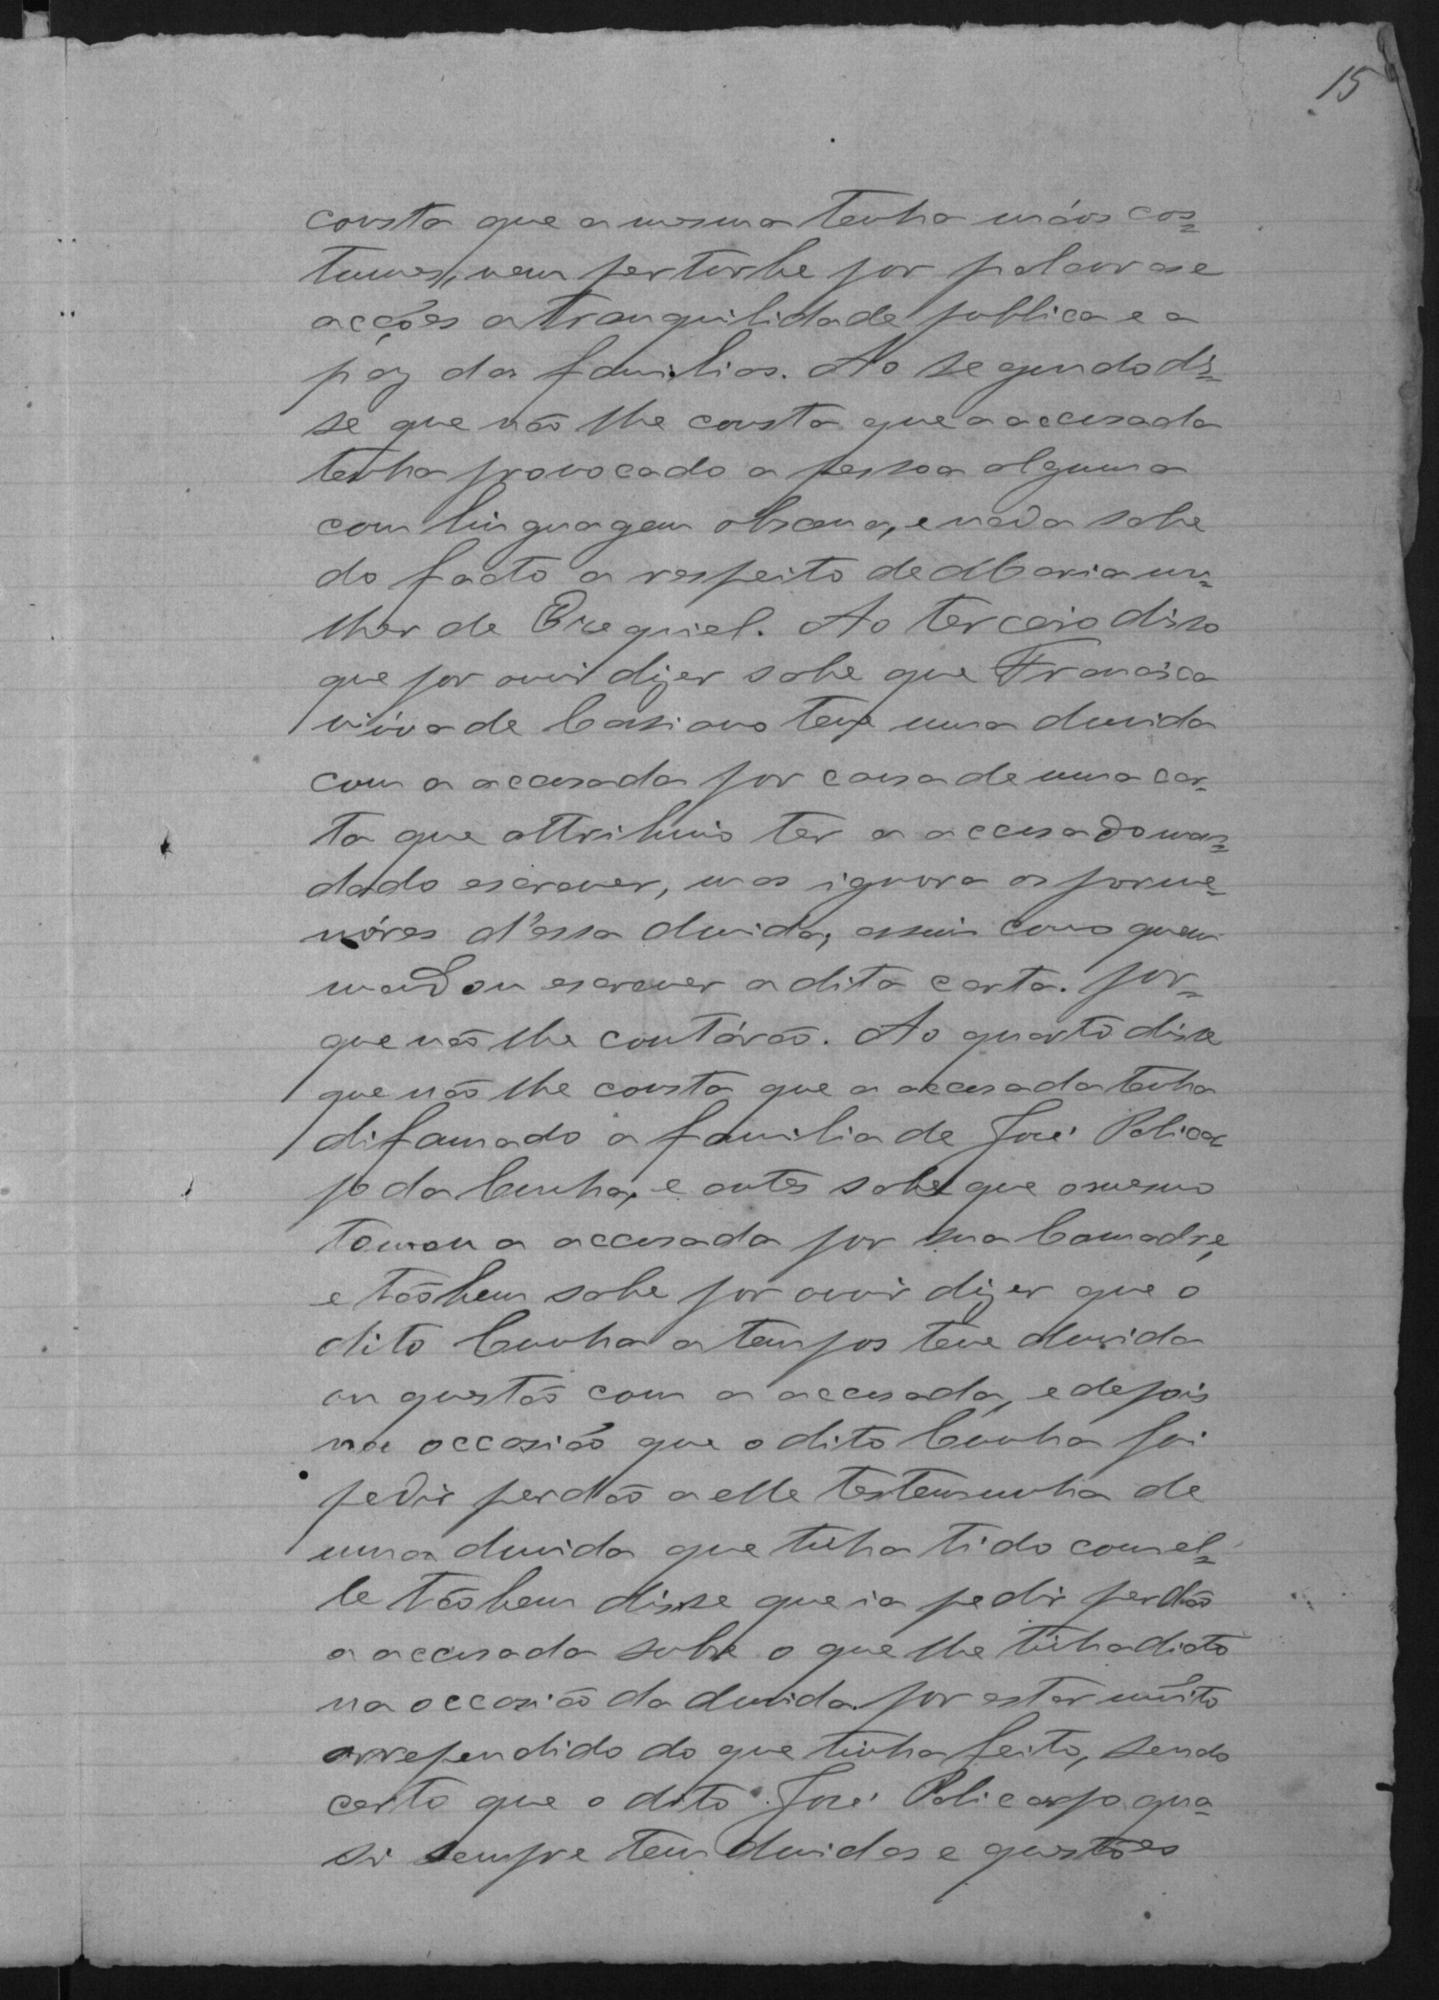 15
consta que a mesma tenha máos cos=
tumes, nem perturbe por palavras e
acções a tranquilidade publica e a
paz da familias. Ao segundo dis=
se que não lhe consta que a accusada
tenha provocado a pessoa alguma
com linguagem obscena, e nada sabe
do facto a respeito de Maria mu=
lher de Ezequiel. Ao terceiro disse
que por ouvir dizer sabe que Francisca
viúva de Casiano teve uma duvida
com a accusada por causa de uma car=
ta que attribuio ter a accusado man=
dado escrever, mas ignora os porme=
nóres d'essa duvida, assim como quem
mandou escrever a dita carta. por=
que não lhe contárão. Ao quarto disse
que não lhe consta que a accusada tenha
difamado a familia de José Policar
po da Cunha, e antes sabe que o mesmo
tomou a accusada por sua Comadre,
e tãobem sabe por ouvir dizer que o
dito Cunha a tempos teve duvida
ou questão com a accusada, e depois
na occasião que o dito Cunha foi
pedir perdão a elle testemunha de
uma duvida que tinha tido com el=
le tãobem disse que ia pedir perdão
a accusada sobre o que lhe tinha dicto
na occasião da duvida por estar muito
arrependido do que tinha feito, sendo
certo que o dito José Policarpo qua=
si sempre tem duvidas e questões